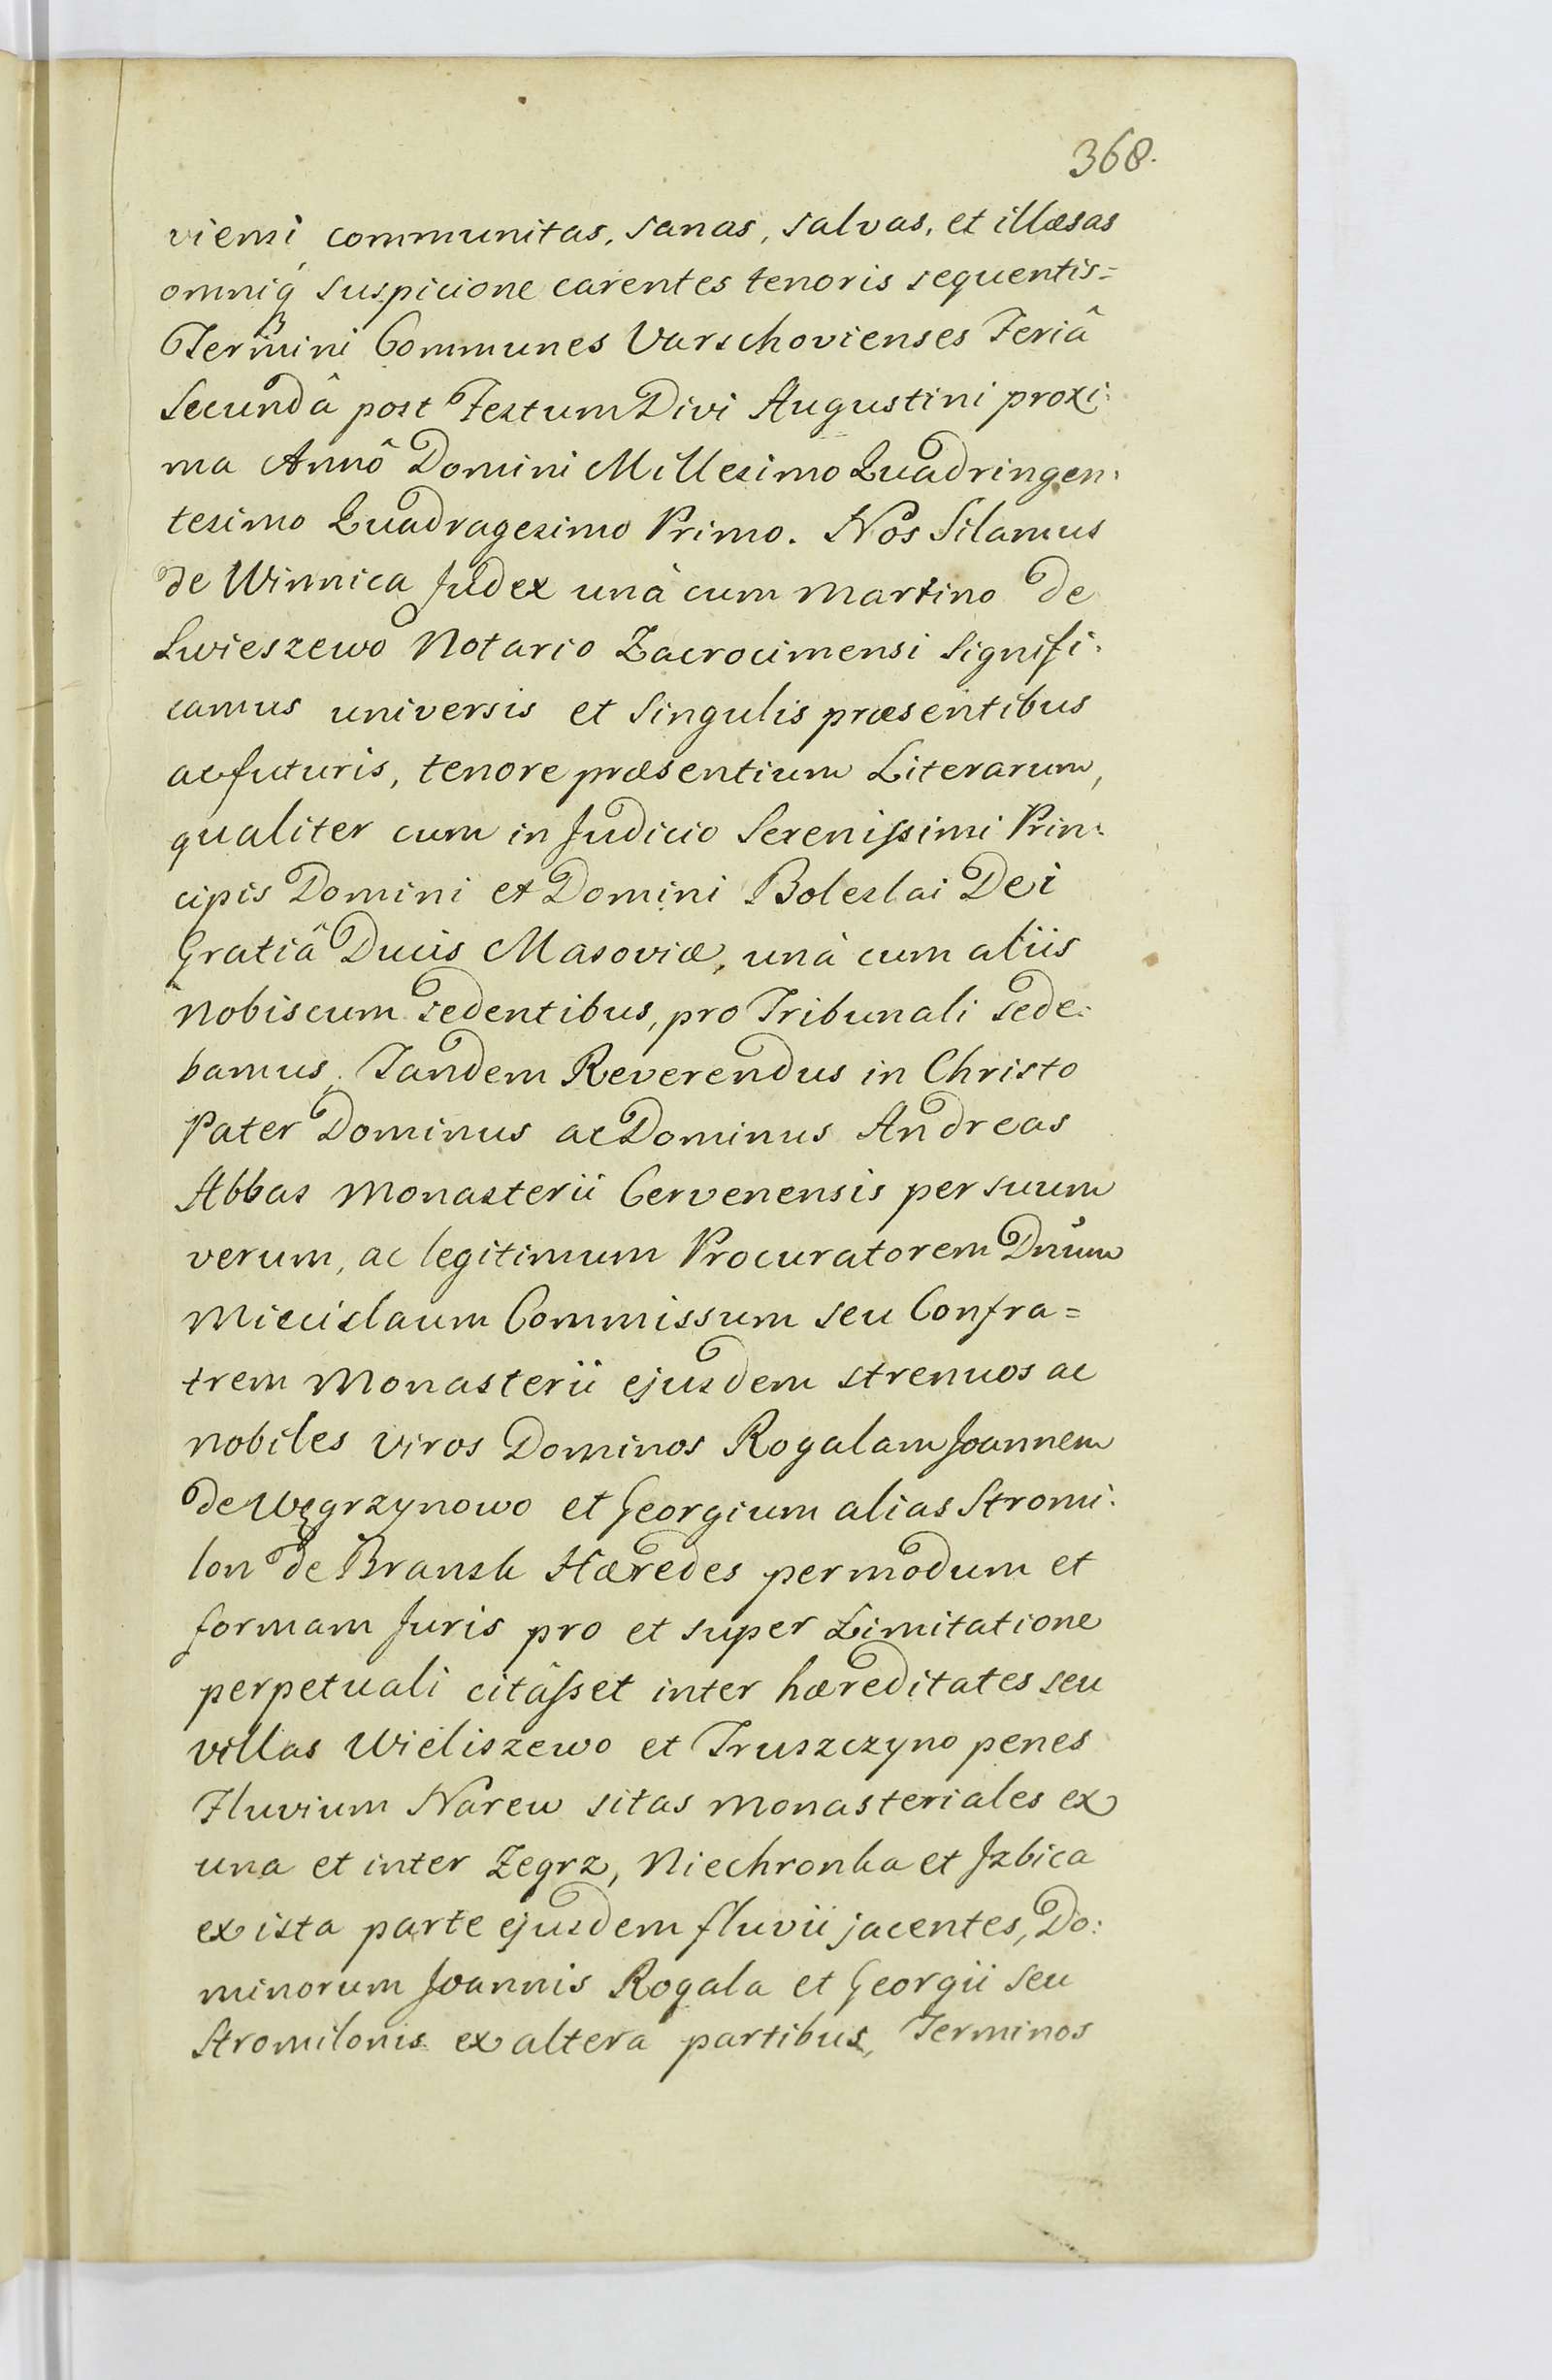 368.
viensi communitas, sanas, salvas, et illæsas
omniq́ suspicione carentes tenoris sequentis=
Termini Communes Varschovienses Feriâ
Secundâ post Festum Divi Augustini proxi:
ma Annô Domini Millesimo Quadringen:
tesimo Quadragesimo Primo. Nos Silanus
de Winnica Judex unà cum Martino de
Swieszewo Notario Zacrocimensi Signifi:
camus universis et Singulis præsentibus
ac futuris, tenore præsentium Literarum,
qualiter cum in Judicio Serenissimi Prin:
cipis Domini et Domini Boleslai Dei
Gratiâ Ducis Masoviæ, unà cum aliis
nobiscum sedentibus, pro Tribunali sede:
bamus. Tandem Reverendus in Christo
Pater Dominus ac Dominus Andreas
Abbas Monasterii Cervenensis per suum
verum, ac legitimum Procuratorem Dnum
Miecislaum Commissum seu Confra=
trem Monasterii ejusdem strenuos ac
nobiles viros Dominos Rogalam Joannem
de Węgrzynowo et Georgium alias Stromi:
lon de Bransk Hæredes per modum et
formam Juris pro et super Limitatione
perpetuali citâsset inter hæreditates seu
villas Wieliszewo et Truszczyno penes
Fluvium Narew sitas monasteriales ex
una et inter Zegrz, Niechronka et Jzbica
ex ista parte ejusdem fluvii jacentes, Do:
minorum Joannis Rogala et Georgii seu
Stromilonis ex altera partibus, Terminos